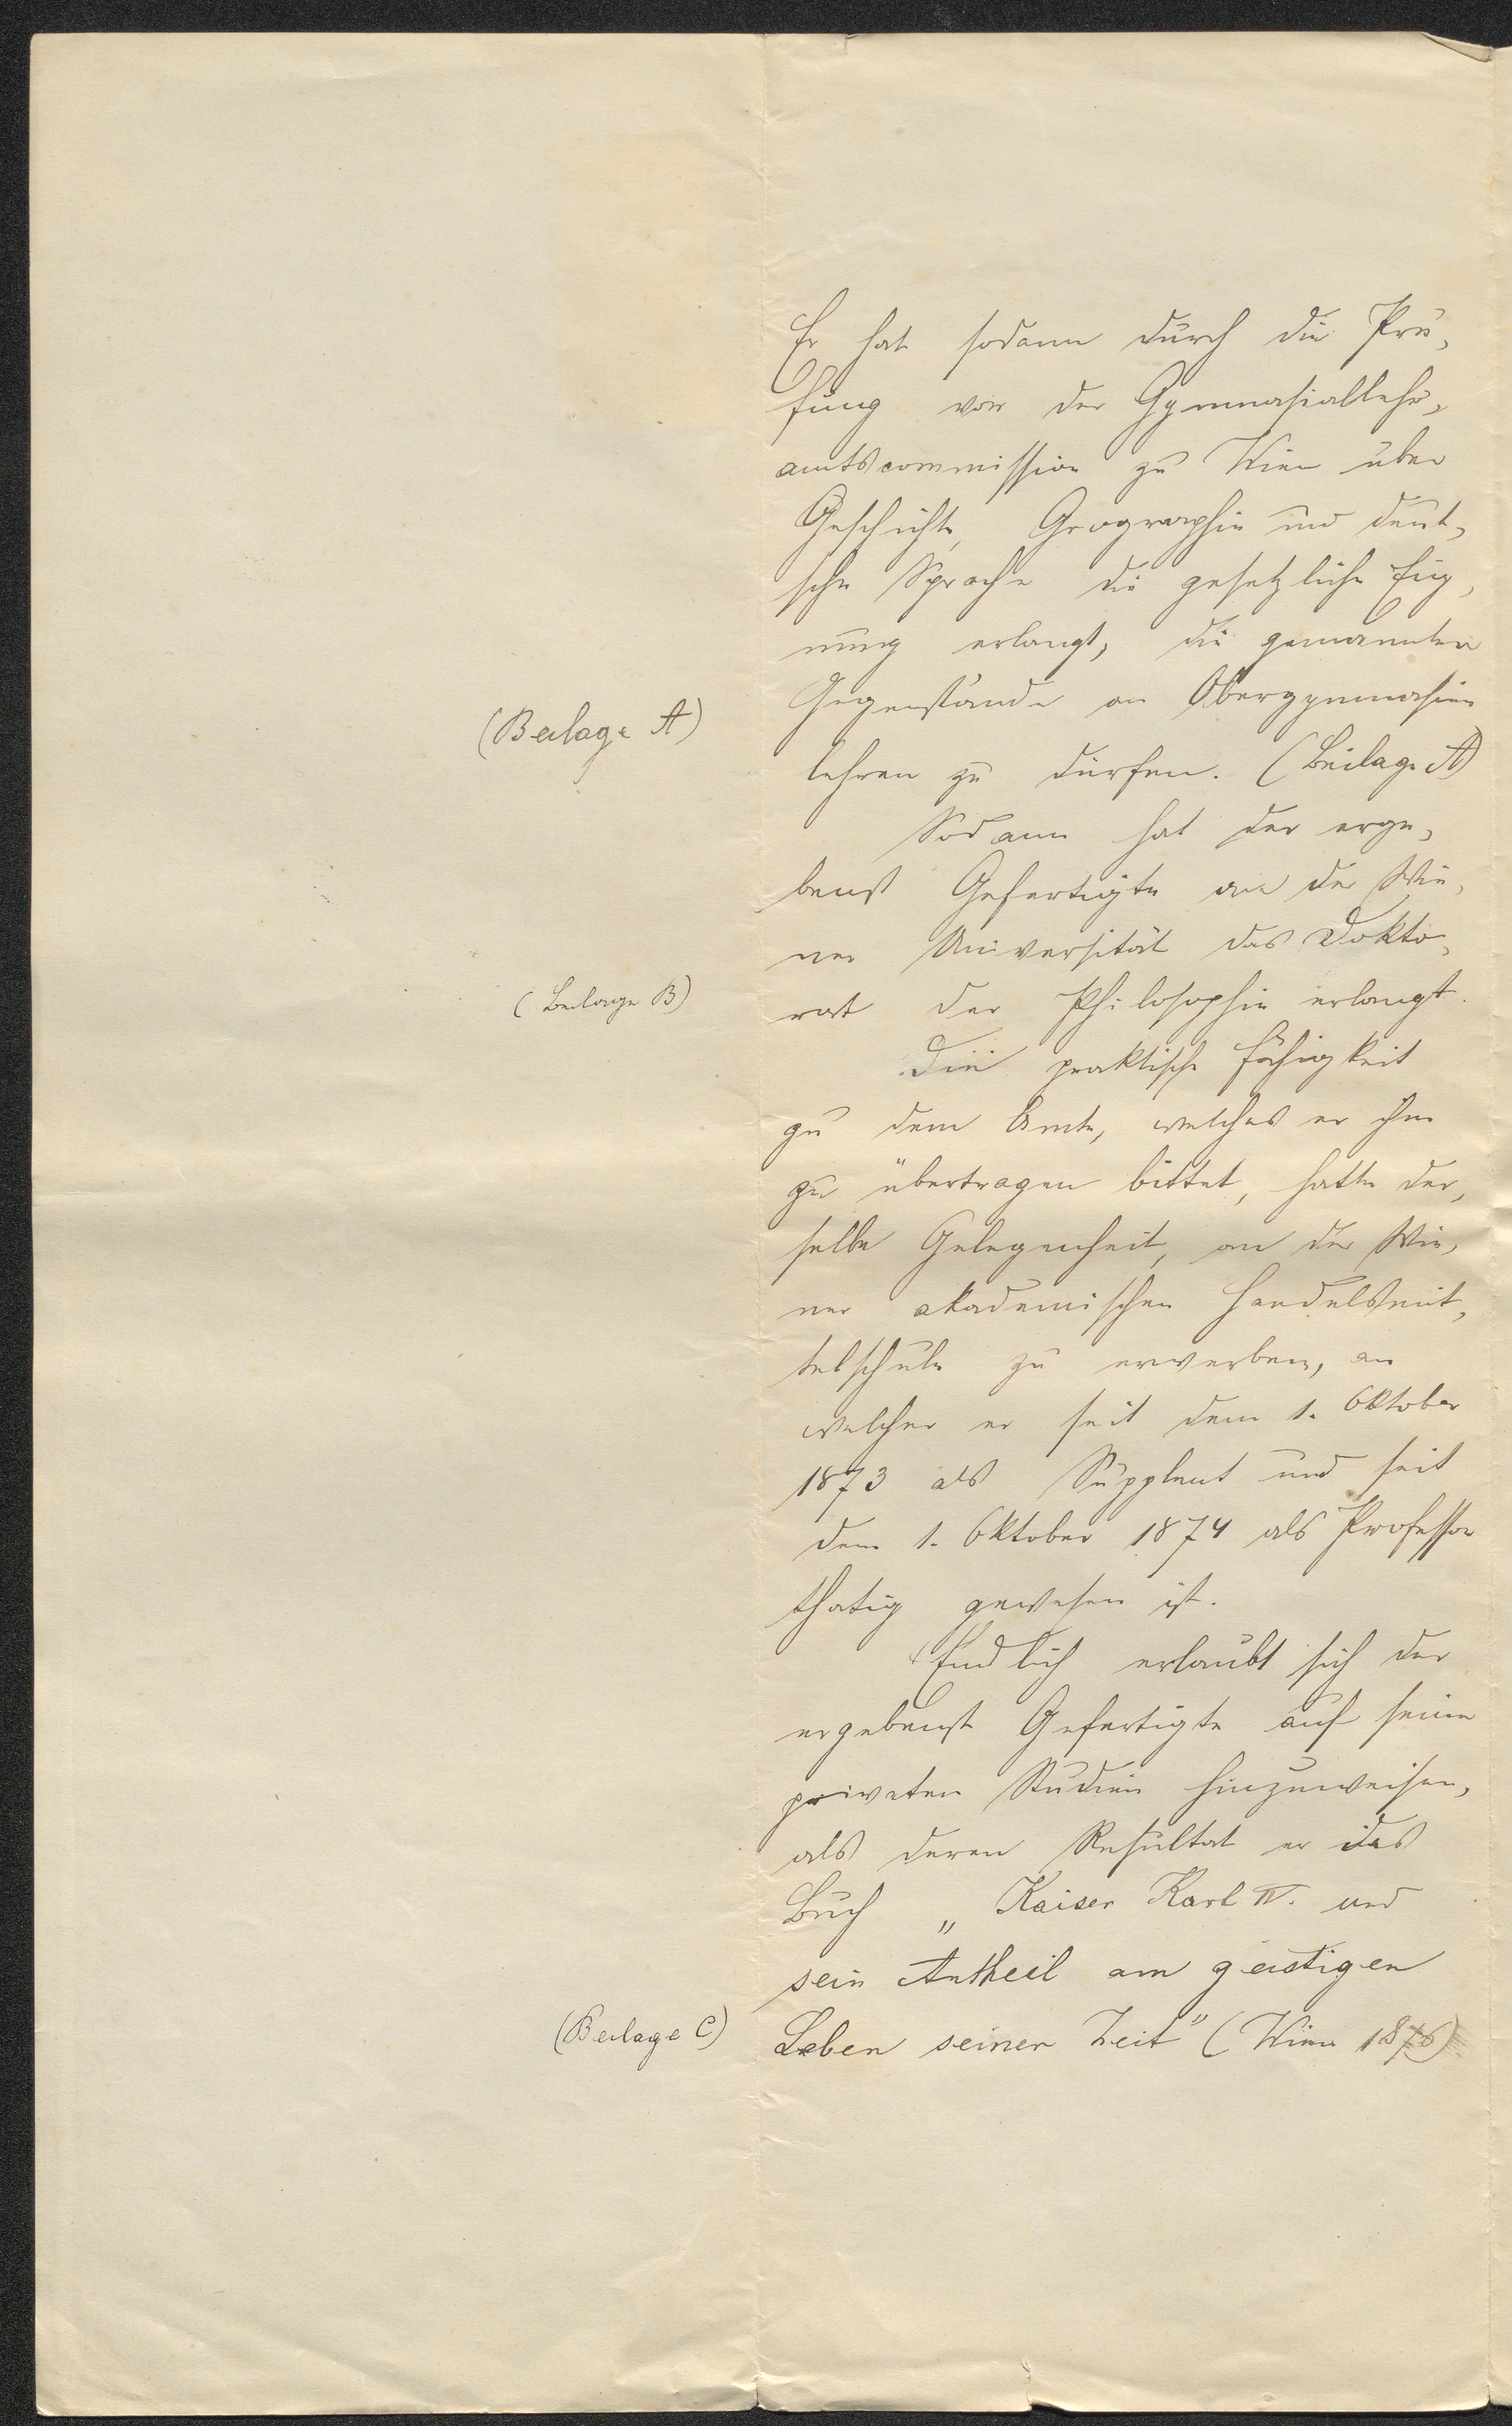 Er hat sodann durch die Prü-
fung vor der Gymnasiallehr-
amtscommission zu Wien über
Geschichte, Geographie und deut-
sche Sprache die gesetzliche Eig-
nung erlangt, die genannten
Gegenstände an Obergymnasien
(Beilage A)
lehren zu dürfen. (Beilage A)
Sodann hat der erge-
benst Gefertigte an der Wie-
ner Universität das Dokto-
(Beilage B)
rat der Philosophie erlangt.
Die praktische Fähigkeit
zu dem Amte, welches er ihm
zu übertragen bittet, hatte der-
selbe Gelegenheit, an der Wie-
ner akademischen Handelsmit-
telschule zu erwerben, an
welcher er seit dem 1. Oktober
1873 als Supplent und seit
dem 1. Oktober 1874 als Professor
thätig gewesen ist.
Endlich erlaubt sich der
ergebenst Gefertigte auf seine
privaten Studien hinzuweisen,
als deren Resultat er das
Buch „Kaiser Karl IV. und
sein Antheil am geistigen
(Beilage C)
Leben seiner Zeit" (Wien 1876)